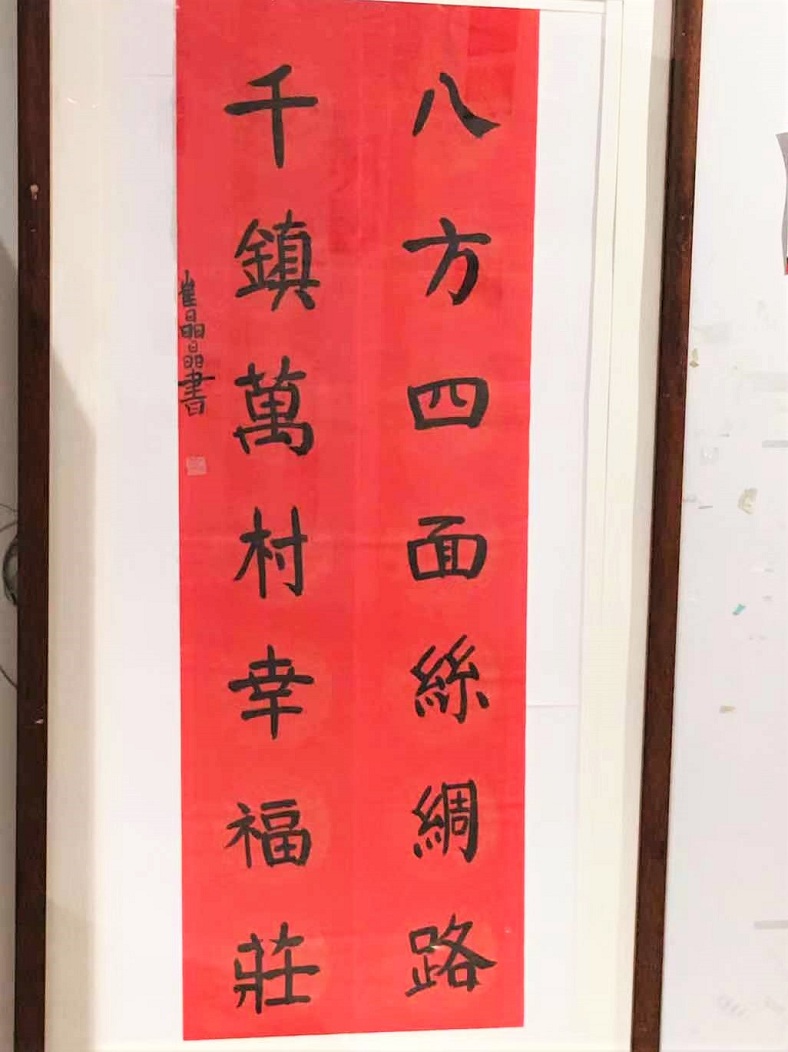 八方四面絲綢路
千鎮萬村幸福莊
崔晶晶書